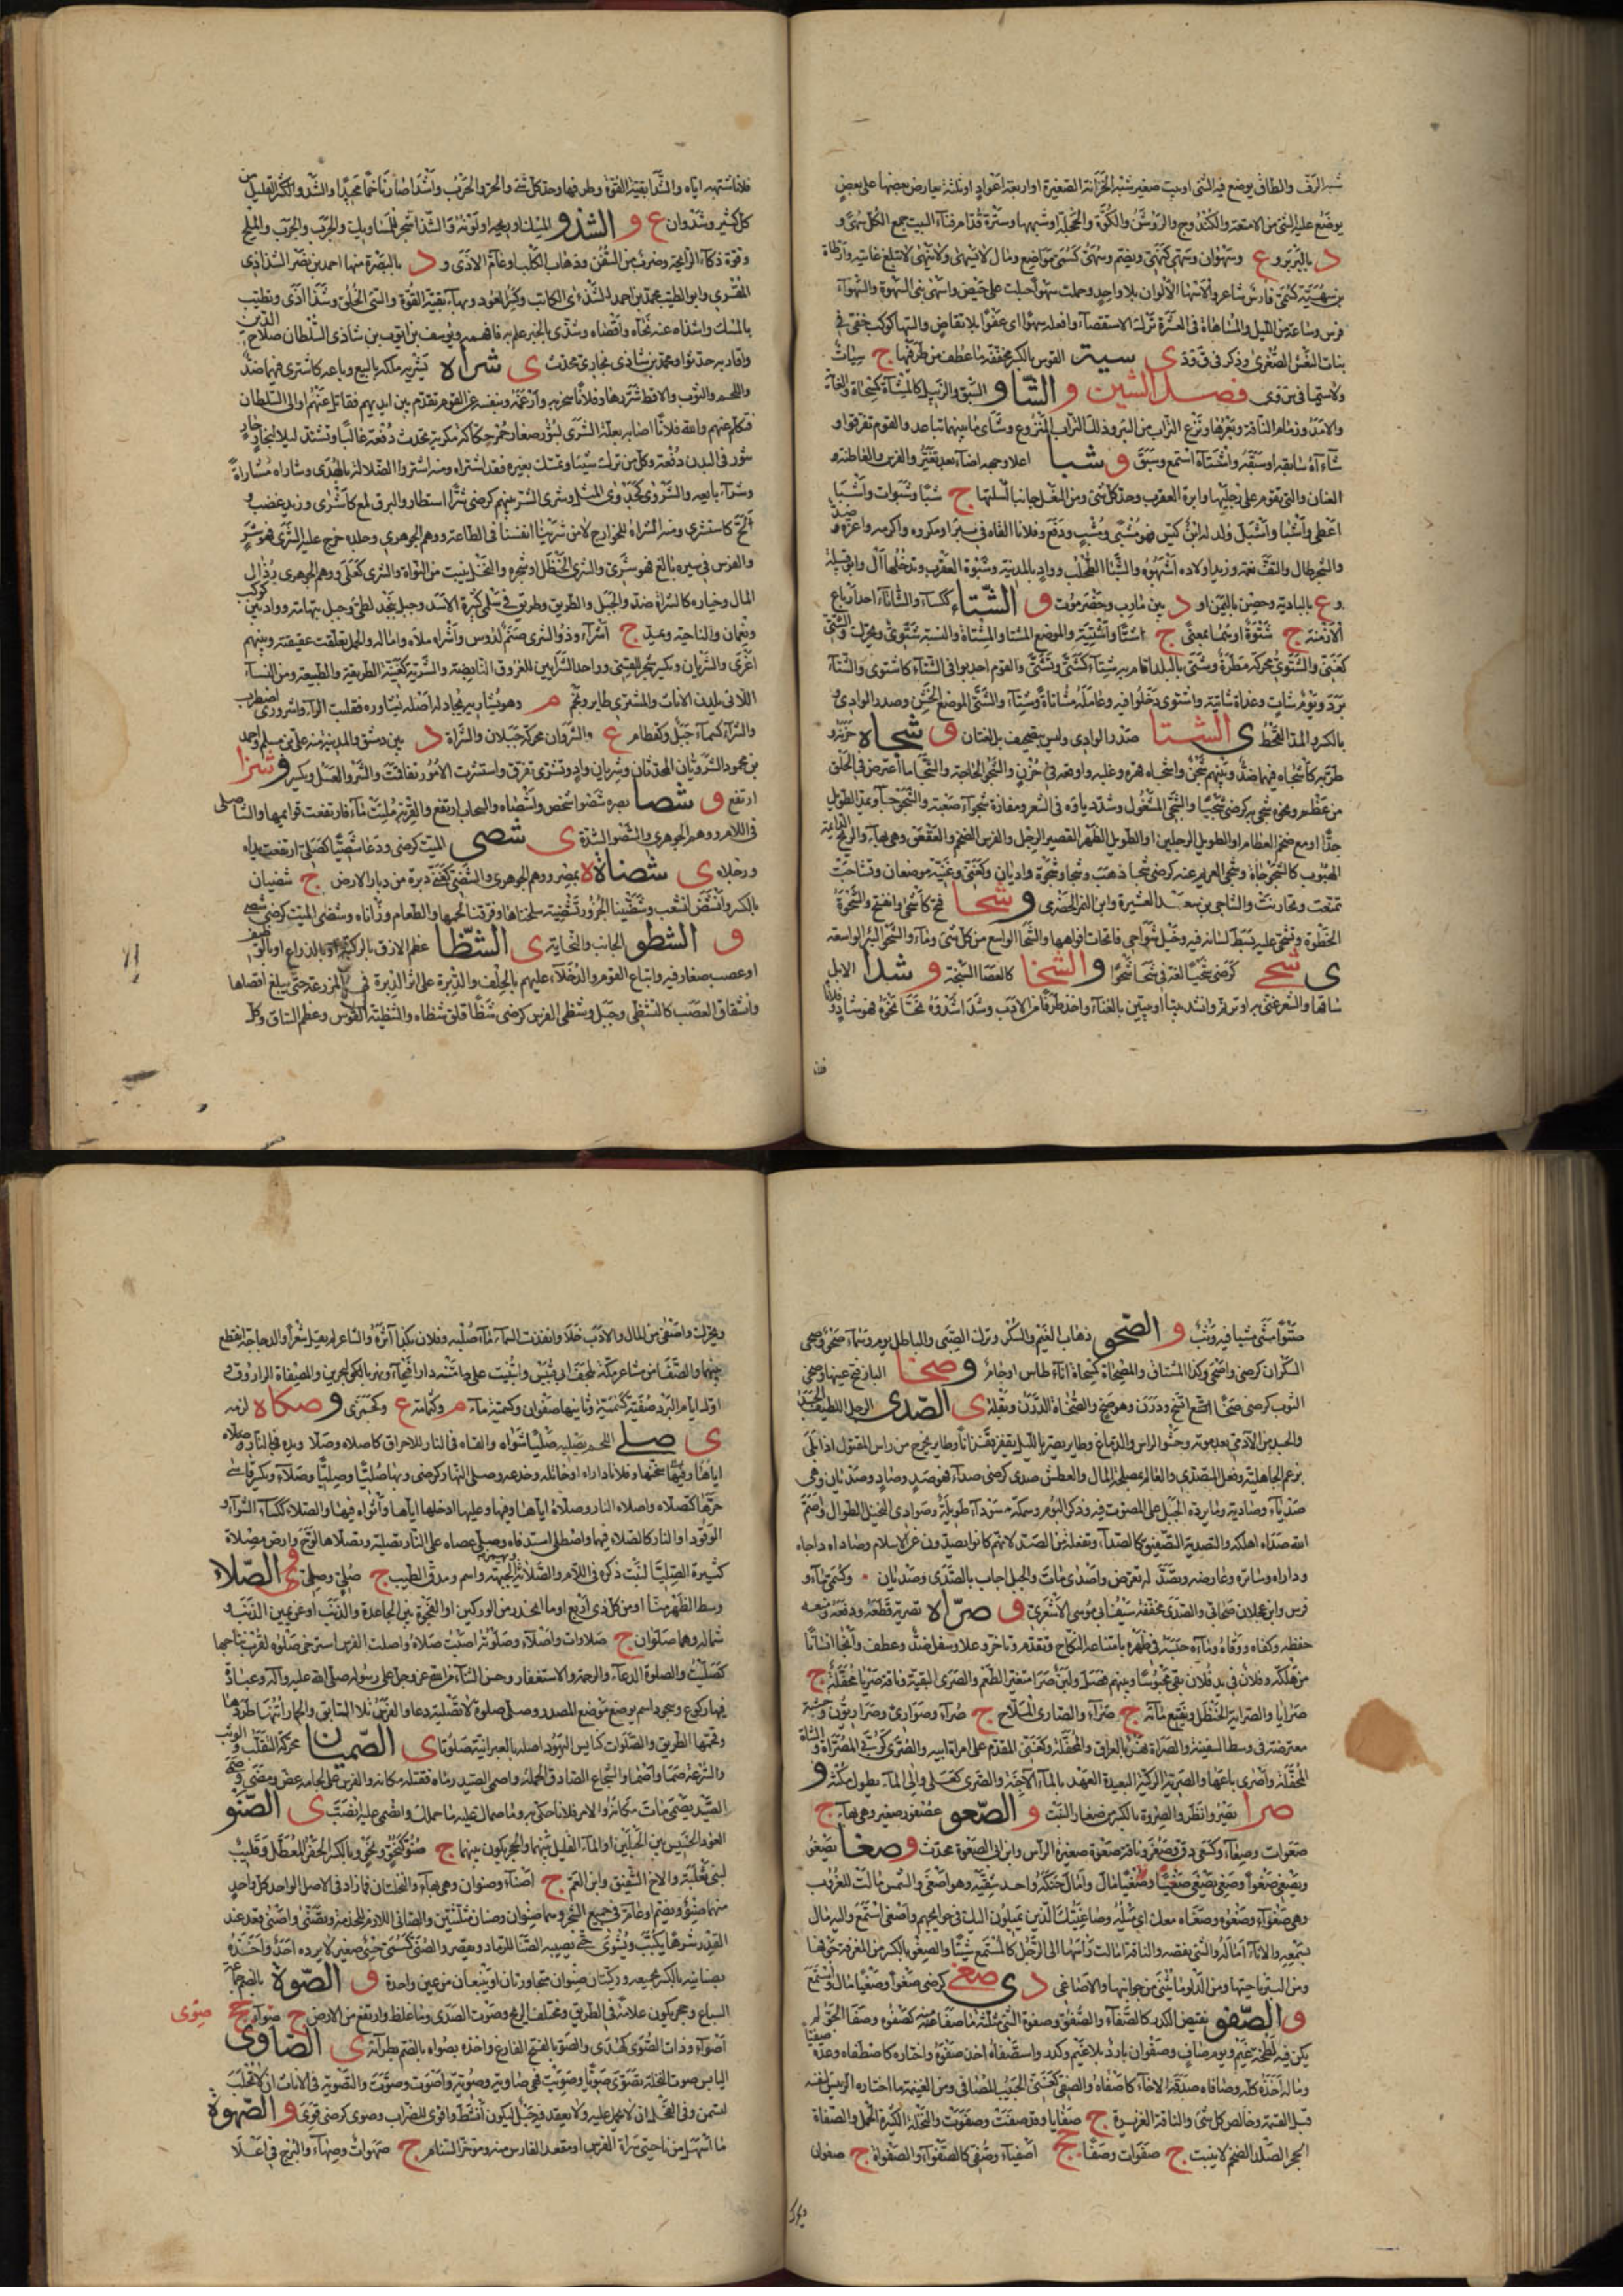 شبه الرف والطاق يوضع فيه الشئ اوبيت صغير شبه الخزانة الصغيرة او اربعة اعواد او ثلثة يعارض بعضها على بعض
يوضع عليه الشئ من الامتعة والكندوج والروشن والكوة والحجلة او شبهها وسترة قدام فناء البيت جمع الكل سهاء و
د بالبربر و ع وسهوان وسهى كنهى ويضم وسهى كسمى مواضع ومال لا يسهى ولا ينهى لا تبلغ غايته وارطاة
بن سهية كسمية فارس شاعر والاسهاء الالوان بلا واحد وحملت سهوا حبلت على حيض واسهى بنى السهوة والسهواء
فرس وساعة من الليل والمساهاة فى العشرة ترك الاستقصاء وافعله سهوا اى عفوا بلا تقاض والسها كوكب خفى فى
بنات النعش الصغرى وذكر فى ق ود ى سية القوس بالكسر مخففة ما عطف من طرفيها ج سيات
ولاسيما فى س وى فصل الشين و الشاو السبق والزبيل كالمشآة كمسحاة والغاية
والامد وزمام الناقة وبعرها ونزع التراب من البئر وذلك التراب المنزوع وشاى ما بينهما تباعد والقوم تفرقوا و
شاءاه سابقه او سبقه واشتاى استمع وسبق و شبا اعلا وجهه اضاء بعد تغير والفرس والغاطنة
العنان والتى يقوم على رجليها وابرة العقرب وحد كل شئ ومن النعل جانبا اسلتها ج شبا وشبوات واشبا
اعطى واشبا واشبل ولد له ابن كيس فهو مشبى ومشب ودفع وفلانا القاه فى بئر او مكروه واكرمه واعزه ضد
والشجر طال والتف نعمة وزيدا ولاده اشبهوه والشبا الطحلب وواد بالمدينة وشبوة العقرب وتدخلها ال وابو قبيلة
و ع بالبادية وحصن باليمن او د بين مارب وحضرموت و الشتاء ككساء والشاتاة احد ارباع
الازمنة ج شتوة او هما بمعنى ج اشتا واشتية والموضع المشتا والمشتاة والنسبة شتوى ويحرك والشتى
كغنى والشتوى محركة مطره وشتى بالبلد اقام به شتاء كشتى وتشتى والقوم اجدبوا فى الشتاء كاشتوى والشتاء
برد ويوم شات وغداة شاتية واشتوى دخلوا فيه وعامله مشاتاة وشتاء والشتى الموضع الخشن وصدر الوادى و
بالكسر والمد القحط ى الشتا صدر الوادى وليس بتصحيف بل لغتان و شجاه حزنه و
طربه كاشجاه فيهما ضد وبينهم شجن واشجاه قهره وغلبه واوقعه فى حزن والشجو الحاجة والشجا ما اعترض فى الحلق
من عظم ونحوه شجى به كرضى شجيا والشجى المشغول وشدد ياؤه فى الشعر ومفازة شجواء صعبة والشجوجى ويمد الطويل
جدا او مع ضخم العظام او الطويل الرجلين او الطويل الظهر القصير الرجل والفرس الضخم والعقعق وهى بهاء والريح الدائمة
الهبوب كالشجوجاة وشجى الغريم عنه كرضى شجا ذهب وشجا وشجوة واديان وكغنى وغنية موضعان وتشاجت
تمنعت وتحازنت والشاجى بن سعد العشيرة وابن النمر الحضرمى و شحا فتح كاشحى وانفتح والشحوة
الخطوة وتشحى عليه بسط لسانه فيه وخيل شواحى فاتحات افواهها والشحا الواسع من كل شئ وماء والشحو البئر الواسعة
ى شحى كرضى شحيا لغة فى شحا شحوا و الشخا كالعصا السبخة و شدا الابل
ساقها والشعر غنى به او ترنم وانشد بيتا او بيتين بالغناء واخذ طرفا من الادب وشدا شدوه نحا نحوه فهو شاد و فلانا
فلانا شبهه اياه والشدا بقية القوة وطرفها وحد كل شئ والحر والجرب واشدا صار ناخما مجيدا والشدو الكثر القليل من
كل كثير وشدوان ع و الشذو المسك او ريحه او لونه والشذا شجر للمساويك والجرب والملح
وقوة ذكاء الرايحة وضرب من السفن وذباب الكلب او عام الاذى و د بالبصرة منها احمد بن نصر الشذائى
المقرى وابو الطيب محمد بن احمد الشذائى الكاتب وكسر العود وبهاء بقية القوة والشئ الخلق وشذا اذى وتطيب
بالمسك واشذاه عنه نحاه واقصاه وشذى بالخبر علم به فافهمه ويوسف بن ايوب بن شاذى السلطان صلاح الدين
واقاربه حدثوا ومحمد بن شاذى بخارى محدث ى شراه يشريه ملكه بالبيع وباعه كاشترى فيهما ضد
واللحم والثوب والاقط شررها وفلانا سخر به وارغمه وبنفسه عن القوم تقدم بين ايديهم فقاتل عنهم او الى السلطان
فتكلم عنهم والله فلانا اصابه بعلة الشرى لبثور صغار حمر حكاكة مكربة تحدث دفعة غالبا وتشتد ليلا لبخار حار
يثور فى البدن دفعة وكل من ترك شيئا وتمسك بغيره فقد اشتراه ومنه اشتروا الضلالة بالهدى وشاراه مشاراة
وشراء بايعه والشروى كجدوى المثل وشرى الشر بينهم كرضى شرا استطار والبرق لمع كاشرى وزيد غضب و
لج كاستشرى ومنه الشراة للخوارج لا من شرينا انفسنا فى الطاعة ووهم الجوهرى وجلده خرج عليه الشرى فهو شر
والفرس فى سيره بالغ فهو شرى والشرى الحنظل او شجره والنخل ينبت من النواة والشرى كعلى ووهم الجوهرى رذال
المال وخياره كالشراة ضد والجبل والطريق وطريق فى سلمى كثيرة الاسد وجبل بنجد لطئ وجبل بتهامة وواد بين كبكب
ونعمان والناحية ويمد ج اشراء وذو الشرى صنم لدوس واشراه ملاه واماله والجمل تفلقت عقيقته وبينهم
اغرى والشريان ويكسر شجر للقسى وواحد الشرايين للعروق النابضة والشرية كغنية الطريقة والطبيعة ومن النساء
اللاتى يلدن الاناث والمشترى طاير ونجم م وهو يشاريه يجادله اصله يشارره فقلبت الراء واشرورى اضطرب
والشراء كسماء جبل وكقطام ع والشروان محركة جبلان والشراة د بين دمشق والمدينة منه على بن مسلم واحمد
بن محمود الشرويان المحدثان وشريان واد وتشرى تفرق واستشرت الامور تفاقمت والشرو العسل ويكسر و شزا
ارتفع و شصا بصره شصوا شخص واشصاه والسحاب ارتفع والقربة ملئت ماء فارتفعت قوايمها والشاصلى
فى اللام ووهم الجوهرى والشصو الشدة ى شصى الميت كرضى ودعا شصيا كصلى ارتفعت يداه
ورجلاه ى شضاناة بمصر ووهم الجوهرى والشصى كغنى دبرة من دبار الارض ج شضيان
بالكسر وانشض انشعب وشضينا الجزور تشضية سلخناها وفرقنا لحمها والطعام رزاناه وشضى الميت كرضى شصى
و الشطو الجانب والناحية ى الشظا عظم لازق بالركبة او بالذراع او بالوظيف
او عصب صغار فيه واتباع القوم والدخلاء عليهم بالحلف والدبرة على اثر الدبرة فى المزرعة حتى يبلغ اقصاها
وانشقاق العصب كالتشظى وجبل وشظى الفرس كرضى شظا فلق شظاه والشظية القوس وعظم الساق وكل
صتوا مشى مشيا فيه وثب و الصحو ذهاب الغيم والسكر وترك الصبى والباطل يوم وسماء صحو وصحى
السكران كرضى واصحى وكذا المشتاق والمصحاة كمسحاة اناء طاس او جام و صخا النار فتح عينها وصخى
الثوب كرضى صخا اتسخ ودرن وهو صخ والصخاة الدرن وبقلة ى الصدى الرجل اللطيف الجسد
والجسد من الادمى بعد موته وحشو الراس والدماغ وطاير يصر بالليل يقفز قفزانا وطاير يخرج من راس المقتول اذا بلى
بزعم الجاهلية وفعل المتصدى والعالم بمصلحة المال والعطش صدى كرضى صدا فهو صد وصاد وصديان وهى
صدياء وصادية وما يرده الجبل على المصوت فيه وذكر البوم وسمكة سوداء طويلة وصوادى النخيل الطوال واصم
الله صداه اهلكه والتصدية التصفيق كالصداء وتفعلة من الصد لانهم كانوا يصدون عن الاسلام وصاداه داجاه
وداراه وساتره وعارضه وتصدى له تعرض واصدى مات والجبل اجاب بالصدى وصديان وكسمى ماء و
فرس وابن عجلان صحابى والصدى مخففة سيف ابى موسى الاشعرى و صراه يصريه قطعه ودفعه ومنعه
حفظه وكفاه ووقاه وماءه حبسه فى ظهره بامتناعه النكاح وتقدم وتاخر وعلا وسفل ضد وعطف وانجا انسانا
من هلكة وفلان فى يد فلان بقى محبوسا وبينهم فصل ولبن صرا متغير الطعم والصرى البقية وناقة صريا محفلة ج
صرايا والصراية الحنظل ونقيع مائه ج صراء والصارى الملاح ج صراء وصرارى وصراريون وخشبة
معترضة فى وسط السفينة والصراة نهر بالعراق والمحفلة وكغنى المقدم على امراة ابيه والصرى كربى المصراة والشاة
المحفلة واصرى باعها والصرية الركية البعيدة العهد بالماء الاجنة والصرى كعلى والى الماء يطول مكثه و
صرا يصير وانظر والصروة بالكسر صغار النبت و الصعو عصفور صغير وهى بهاء ج
صعوات وصعاء وكسعى دق وصغر وناقة صعوة صغيرة الراس وابن ابى الصعوة محدث و صغا يصغو
ويصغى صغوا وصغى يصغى صغا وصغيا مال وامال حنكه واحد شقيه وهو اصغى والشمس مالت للغروب
وهى صغواء وصغوه وصغاه معك اى ميله وصاغيتك الذين يميلون اليك فى حوايجهم واصغى استمع واليه مال
بسمعه والاناء اماله والشئ نقصه والناقة امالت راسها الى الرجل كالمستمع شيئا والصغو بالكسر من المغرفة جوفها
ومن البئر ناحيتها ومن الدلو ما يثنى من جوانبها والاصاغى د ى صغى كرضى صغوا وصغيا مال واستمع
و الصفو نقيض الكدر كالصفاء والصفوة وصفوة الشئ مثلثة ما صفا منه كصفوه وصفا الجو لم
يكن فيه لطخة غيم ويوم صاف وصفوان بارد بلا غيم وكدر واستصفاه اخذ صفوه واختاره كاصطفاه وعده صفيا
وماله اخذه كله وصافاه صدقه الاخاء كاصفاه والصفى كغنى الحبيب المصافى ومن الغنيمة ما اختاره الرئيس لنفسه
قبل القسمة وخالص كل شئ والناقة الغزيرة ج صفايا وقد صفت وصفوت والنخلة الكثيرة الحمل والصفاة
الحجر الصلد الضخم لا ينبت ج صفوات وصفا جج اصفياء وصفى كالصفواء والصفوانة ج صفوان
ويحرك واصفى من المال والادب خلا وانفدت النساء ماء صلبه وفلان بكذا آثره والشاعر لم يقل شعرا والدجاجة انقطع
بيضها والصفا من مشاعر مكة بلحف ابى قبيس وابتنيت على متنه دار فيحاء ونهر بالكوفة البحرين والمصفاة الراووق و
اول ايام البرد صفية كسمية وثانيها صفوان وكسمية ماء م وكثمامة ع وكجمزى و صكاه لزمه
ى صلى اللحم يصليه صليا شواه والقاه فى النار للاحراق كاصلاه وصلا ويده فى النار وصلاه
اياها وفيها سخنها وفلانا داراه او خاتله وخدعه وصلى النار كرضى وبها صليا وصليا وصلاء ويكسر قاسى
حرها كتصلاه واصلاه النار وصلاه اياها وفيها وعليها ادخلها اياها واثواه فيها والصلاء ككساء الشواء و
الوقود او النار كالصلا فيهما واصطلى استدفا وصلى عصاه على النار تصلية وتصلاها لوح وارض مصلاة
كثيرة الصليان لنبت ذكر فى اللام والصلاية الجبهة واسم ومدق الطيب ج صلى وصلى وى الصلاء
وسط الظهر منا او من كل ذى اربع او ما انحدر من الوركين او الفرجة بين الجاعرة والذنب او عن يمين الذنب و
شماله وهما صلوان ج صلوات واصلاء وصلوته اصبت صلاه واصلت الفرس استرخى صلواه لقرب نتاجها
كصليت والصلوة الدعاء والرحمة والاستغفار وحسن الثناء من الله عز وجل على رسوله صلى الله عليه وآله وعبادة
فيها ركوع وسجود اسم يوضع موضع المصدر وصلى صلوة لا تصلية دعا والفرس تلا السابق والحمار اتنه طردها
وقحمها الطريق والصلوات كنايس اليهود اصله بالعبرانية صلوتا ى الصميان محركة التقلب والوثب
والسرعة صما واصما والشجاع الصادق الحملة واصمى الصيد رماه فقتله مكانه والفرس على لجامه عض ومضى و صمى
الصيد يصمى مات مكانه والامر فلانا حل به وما صماك عليه ما حملك وانصمى عليه انصب ى الصنو
العود الخسيس بين الجبلين او الماء القليل بينهما والحجر يكون بينهما ج صنو كنحو ونحى وبالكسر الحفر المعطل وقليب
لبنى ثعلبة والاخ الشقيق وابن العم ج اصناء وصنوان وهى بهاء والنخلتان فما زاد فى الاصل الواحد كل واحد
منهما صنو ويضم او عام فى جميع الشجر وهما صنوان وصنيان مثلثتين والصانى اللازم للخدمة وتصنى واصنى قعد عند
القدر شرها يكبب ويشوى حتى يصيبه الصنا للرماد ويقصر والصنى كسمى حسى صغير لا يرده احد واخذه
بصنايته بالكسر بجميعه وركيتان صنوان متجاورتان او ينبعان من عين واحدة و الصوة بالضم جماعة
السباع وحجر يكون علامة فى الطريق ومختلف الريح وصوت الصدى وما غلظ وارتفع من الارض ج صوى جج صوى
اصواء وذات الصوى كهدى والصو بالفتح الفارغ واخذه بصواه بالضم بطراءته ى الصاوى
اليابس صوت النخلة تصوى صويا وصويت فهى صاوية وصوية واصوت وصوت والتصوية فى الاناث ان لا تحلب
لتسمن وفى الفحل ان لا يحمل عليه ولا يعقد فيه حبل ليكون انشط واقوى للضراب وصوى كرضى قوى و الصهوة
ما اسهل من ناحيتى سراة الفرس او مقعد الفارس منه ومؤخر السنام ج صهوات وصهاء والبرج فى اعلا